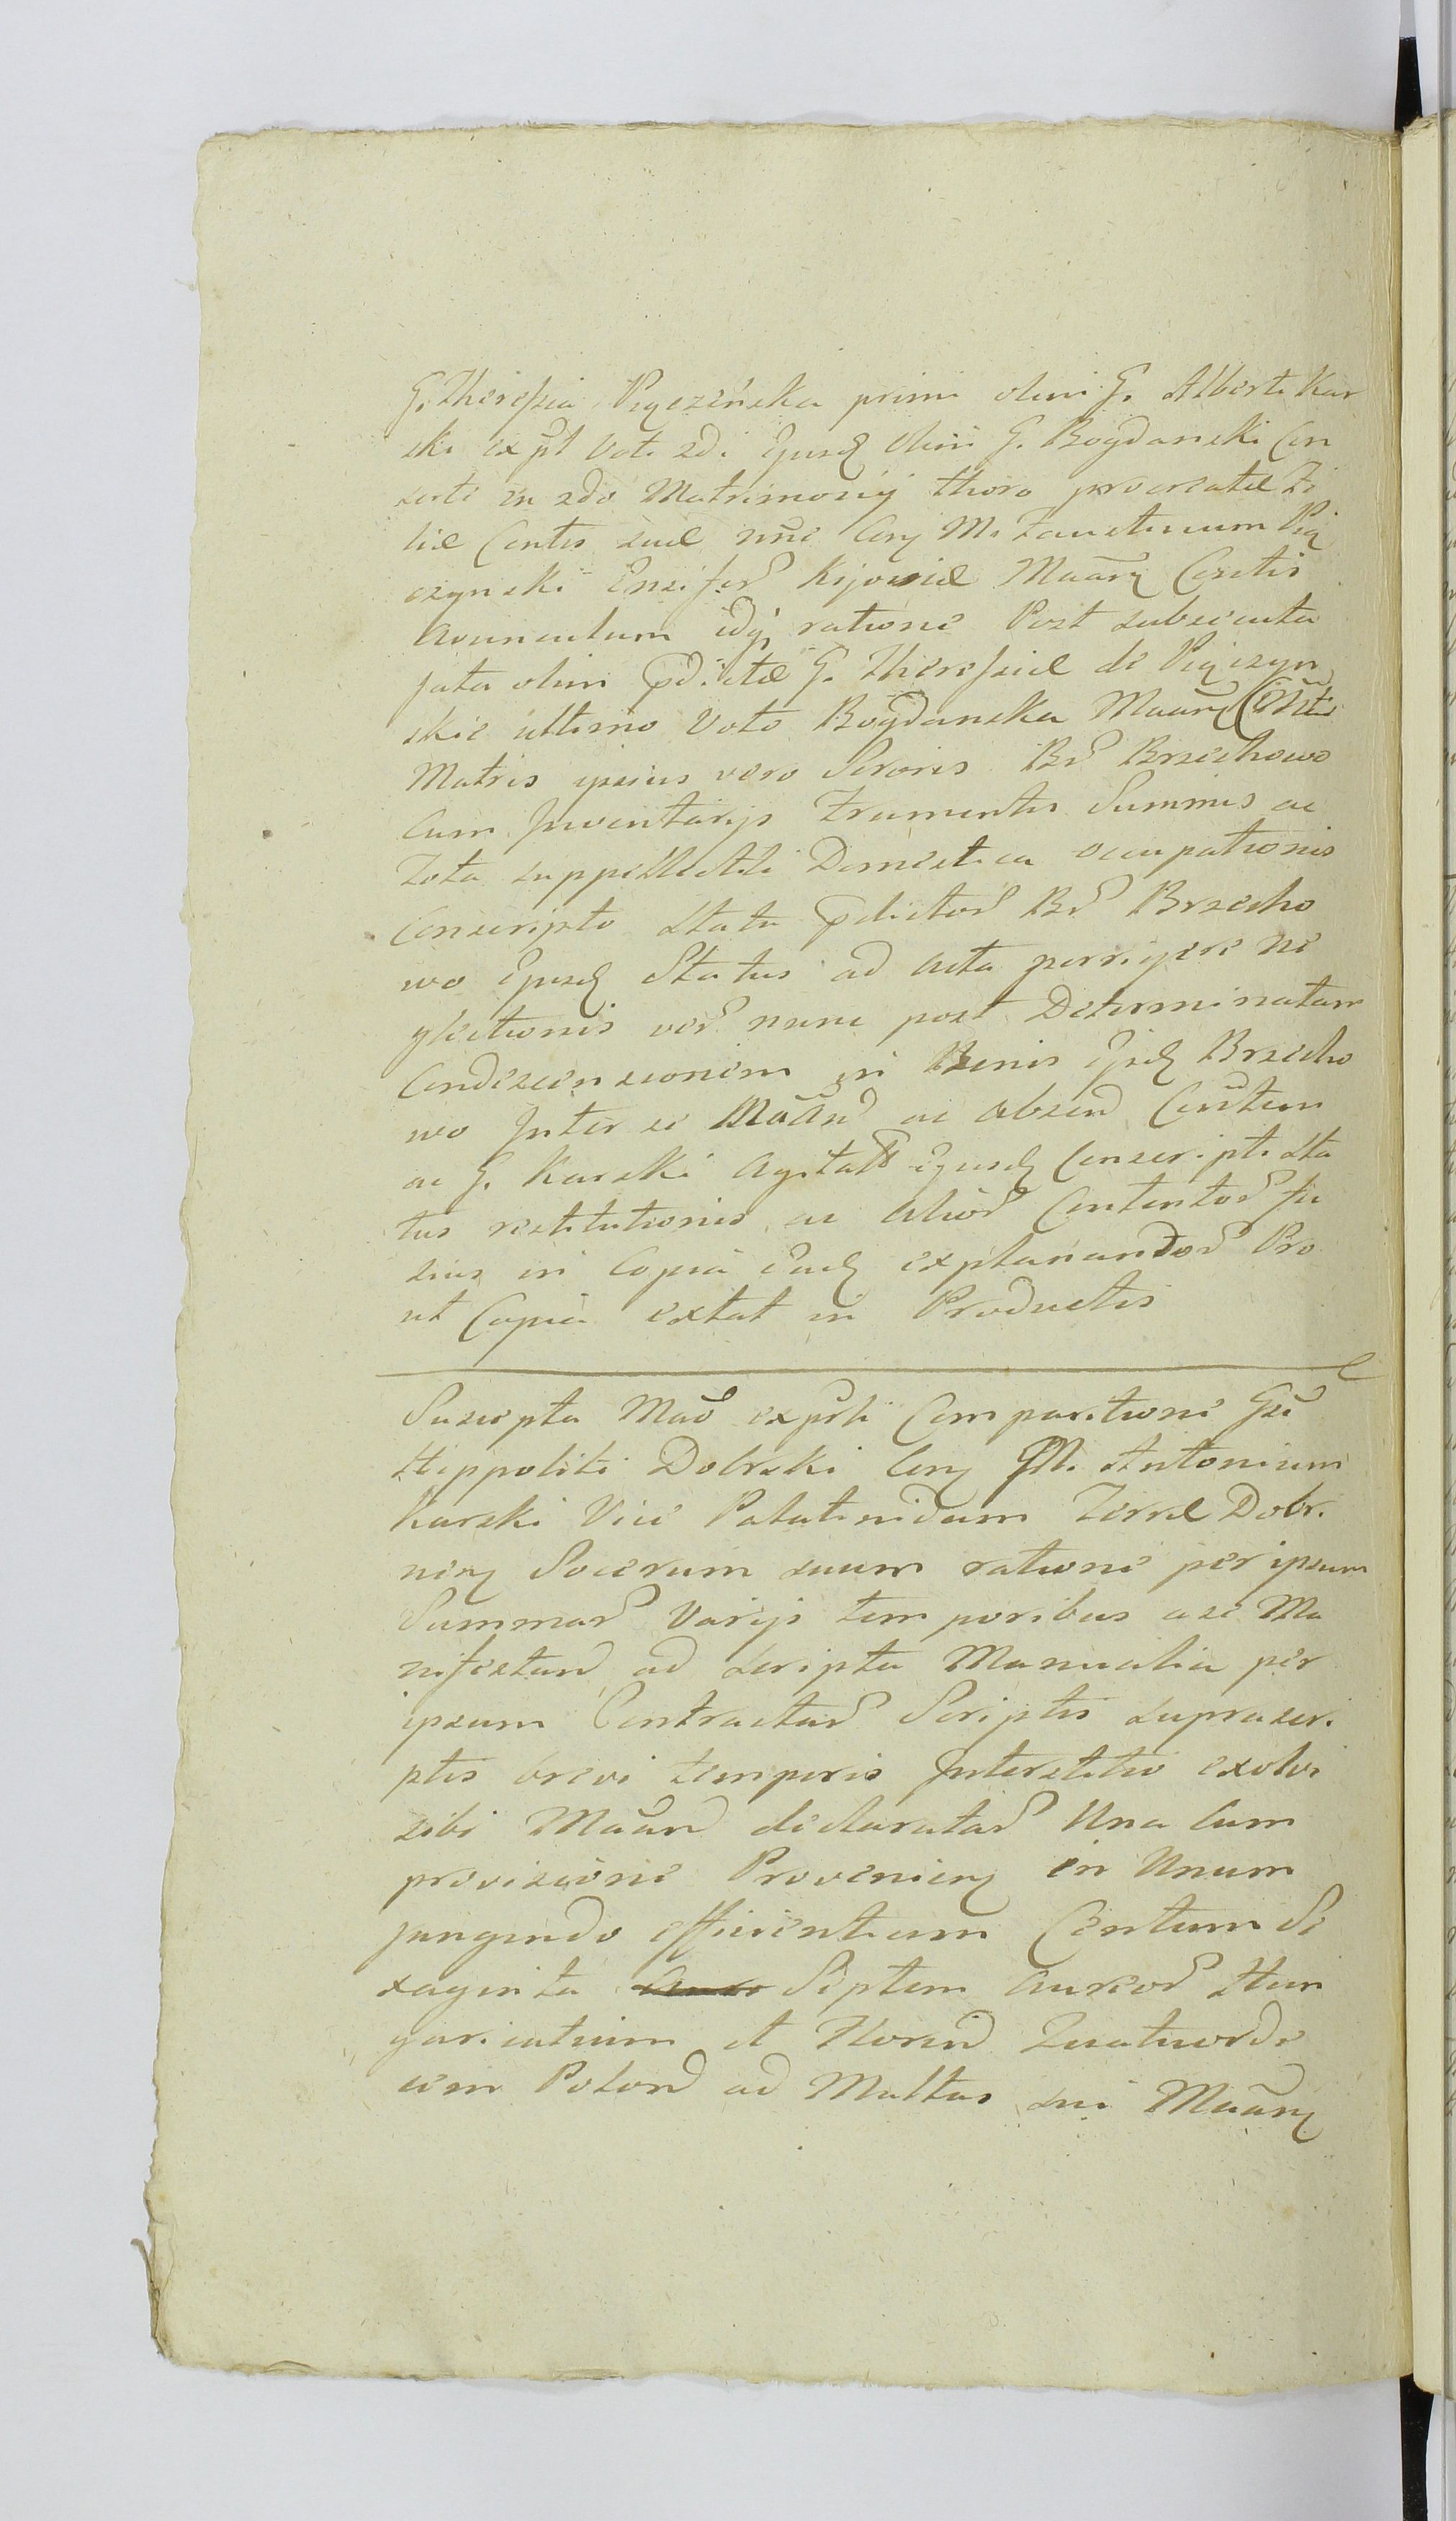 G. Theressia Pigczeńska primi olim G. Alberti Kar
ski expt Voti 2di Ejusq olim G. Bogdanski Con
sorte in 2do Matrimonij thoro procreatæ Fi
liæ Contis suæ nunc Conq M. Faustinum Pig
czynski Ensifer Kijoviæ Maãnq Consctis
Avunculum idq ratione Post subsecuta
fata olim pdictæ G. Theressiæ de Pigczyn
skie ultimo Voto Bogdanska Maãnq
Matris ipsius vero Sororis Br Brzechowo
Cum Inventarijs Frumentis Summis ac
Tota suppellectili Domestica occupationis
Conscripto Statu pdictor Br Brzecho
wo Ejusq Status ad Acta porrigere ne
glectionis ver nunc post Determinatam
Condescensionem in Bonis Ejsq Brzecho
wo Inter se Maãnd ac absend Contem
ac G. Karski Agitatt Ejusq Conscripti Sta
tus restitutionis ac Alior Contentor fu
sius in Copia Eadq explanandor Pro
ut Copia extat in Productis
Suscepta Mad exprti Comparitione Gsi
Hippoliti Dobrski Conq M. Antonium
Karski Vice Palatinidam Terræ Dobr.
nenq Socerum suum ratione per ipsum
Summar Varijs temporibus a se Ma
nifestand ad scripta Manualia per
ipsum Contractar Scriptis suprascri
ptis brevi temporis Interstitio exolvi
sibi Maãnd declaratar Una Cum
provisione Provenienq in Unum
jungendo efficientium Centum Se
xaginta Septem Aureor Hun
garicalium et Floren Quatuorde
cim Polon ad Multas sui Maãnq